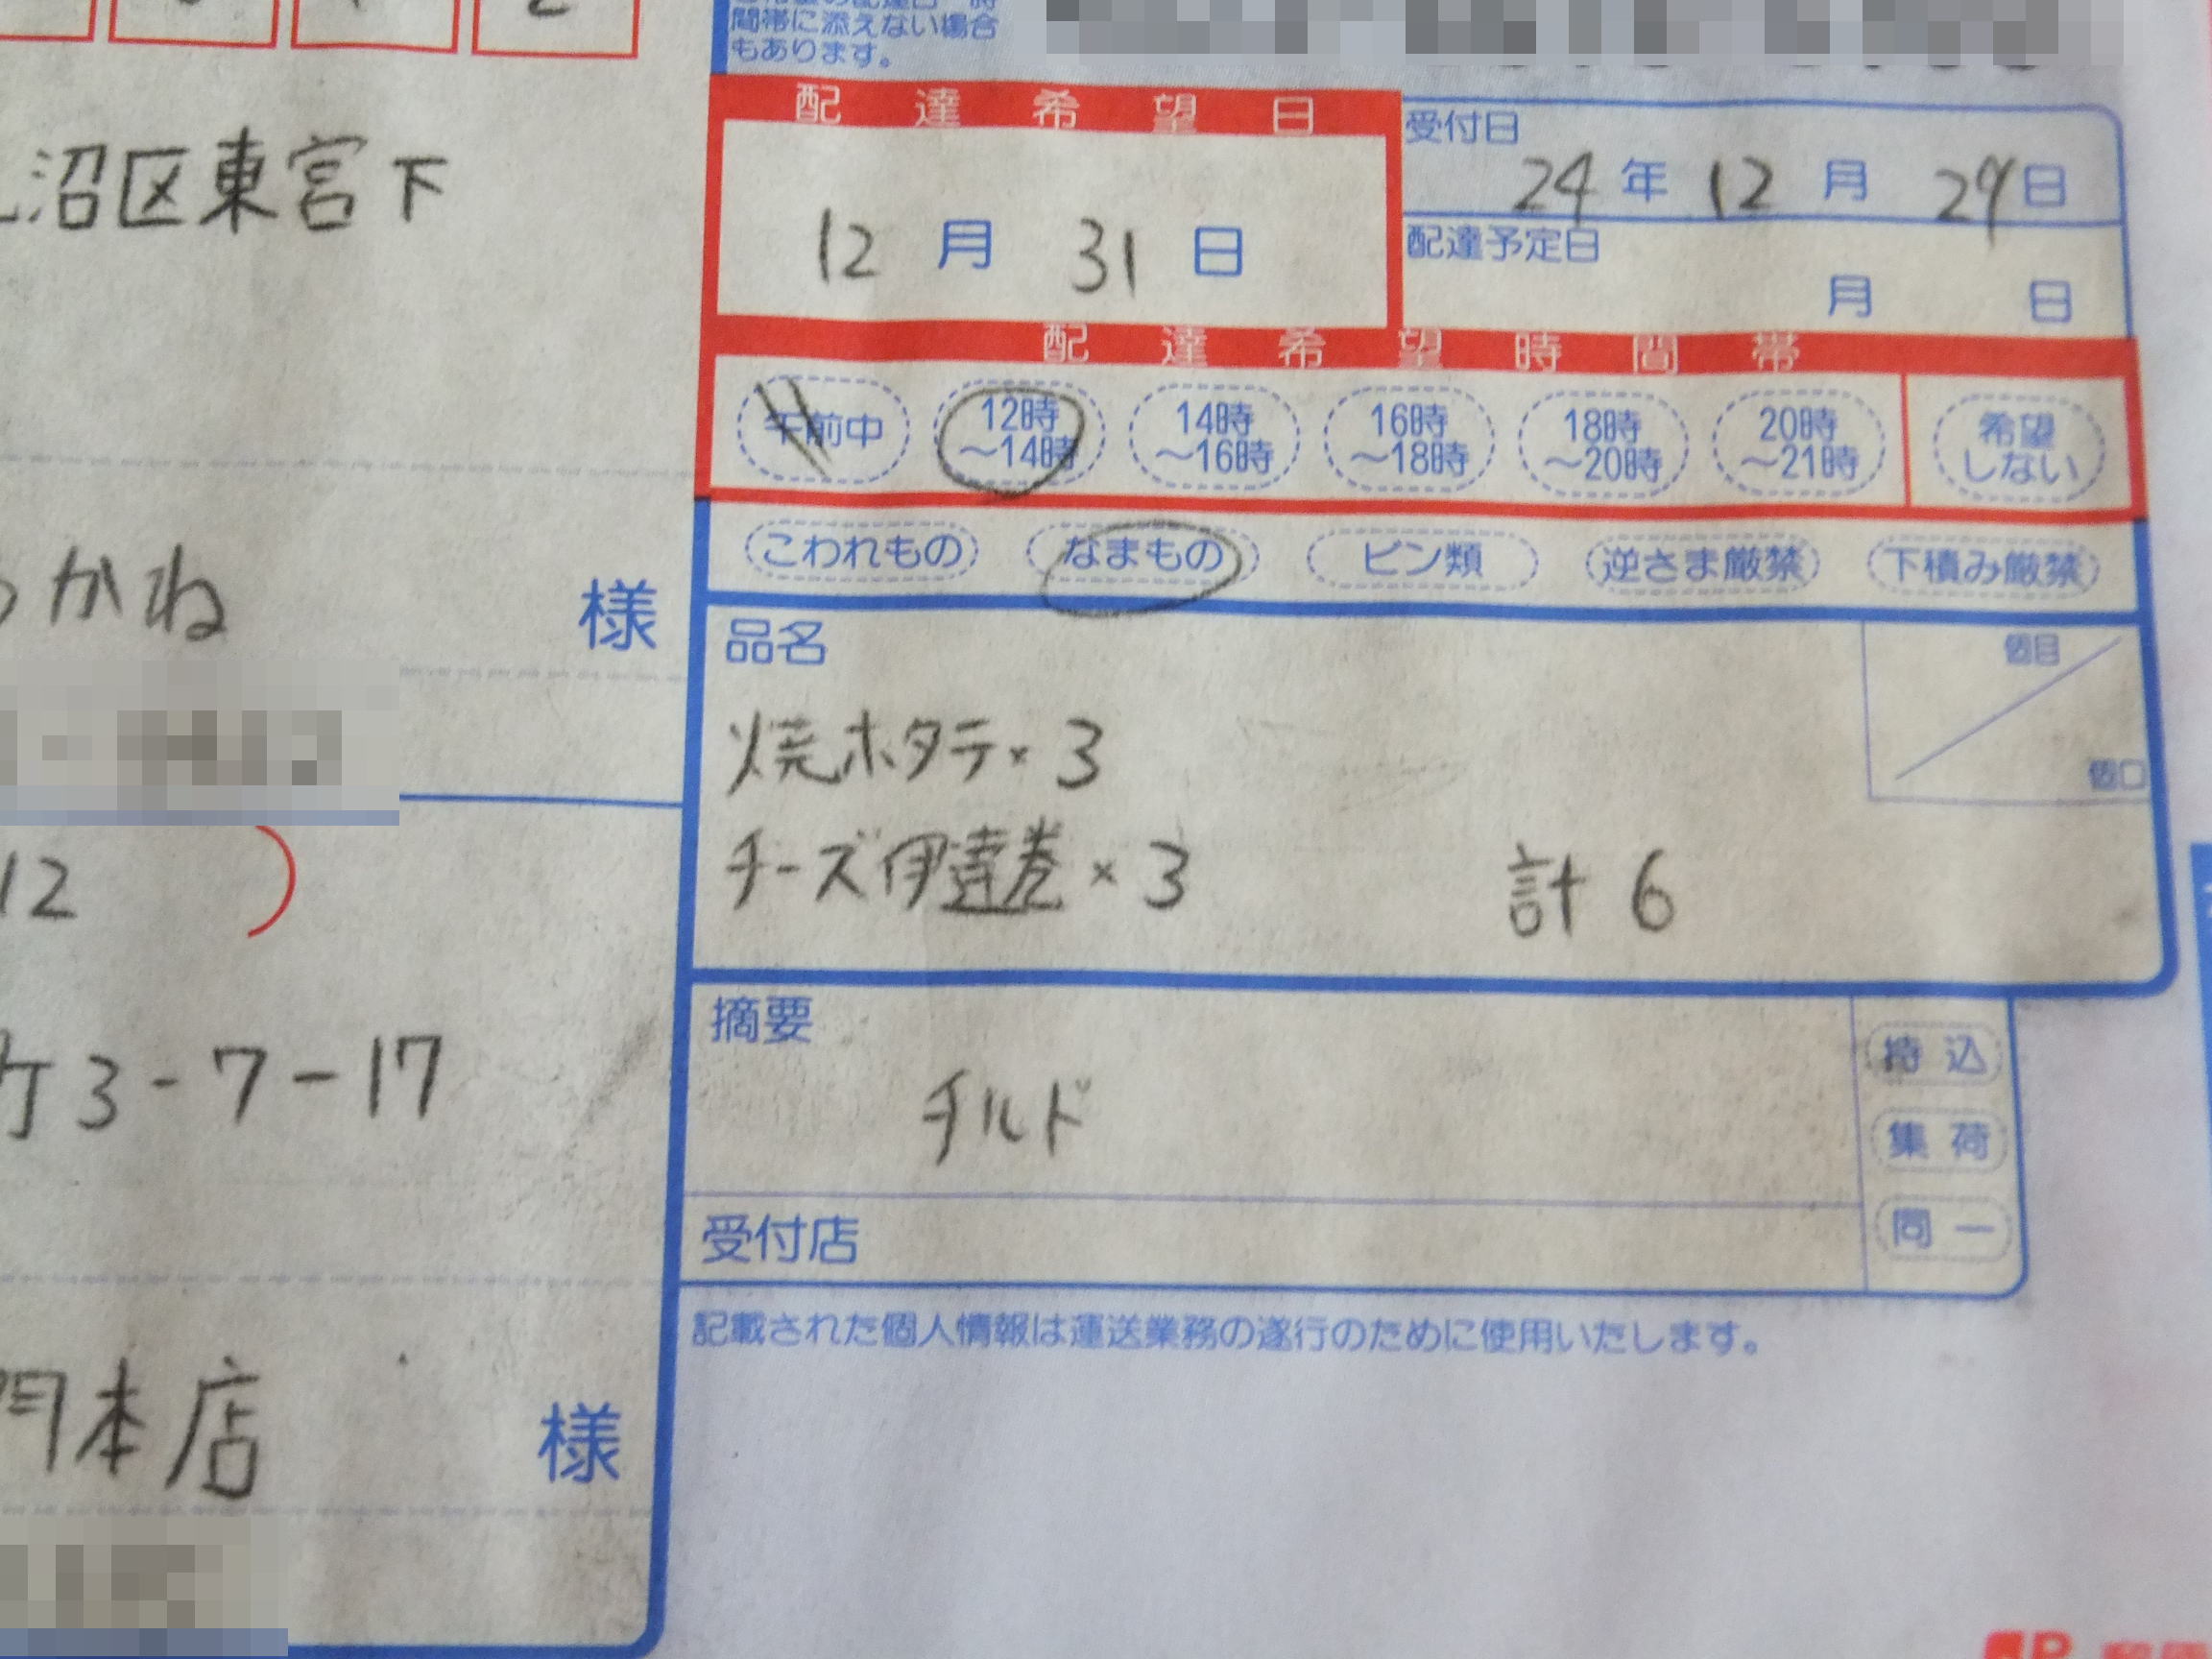 間帯に添えない場合
もあります。
配達希望日
12月31日
受付日
24年12月29日
配達予定日
月 日
配達希望時間帯
午前中
12時
～14時
14時
～16時
16時
～18時
18時
～20時
20時
～21時
希望
しない
こわれもの
なまもの
ビン類
逆さま厳禁
下積み厳禁
品名
個目
個口
焼ホタテ×3
チーズ伊達巻×3
計6
摘要
チルド
持込
集荷
同一
受付店
記載された個人情報は運送業務の遂行のために使用いたします。
沼区東宮下
かね
様
12)
3-7-17
本店
様